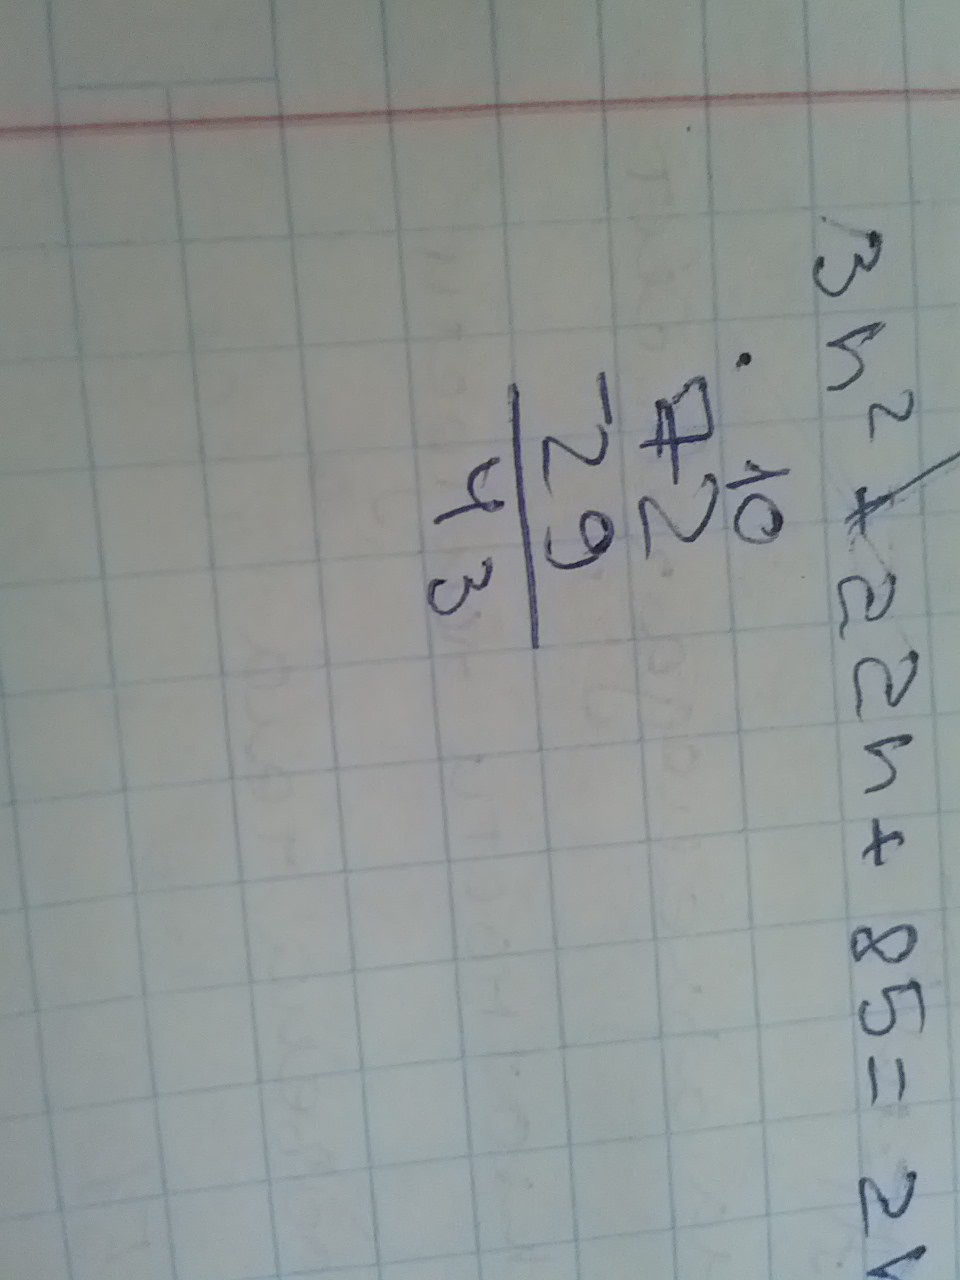 3n² + 22n + 85 = 2
. 10
72
- 29
43